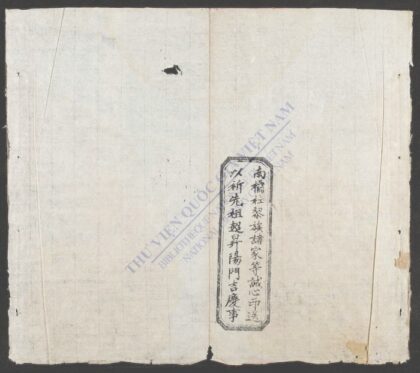 南橋社黎族諸家等誠心印送
以祈先祖超昇陽門吉慶事
THƯ VIỆN QUỐC GIA VIỆT NAM
BIBLIOTHÈQUE NATIONALE DU VIETNAM